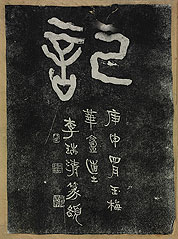 記
庚申四月玉梅
華盦道士
李瑞清篆額